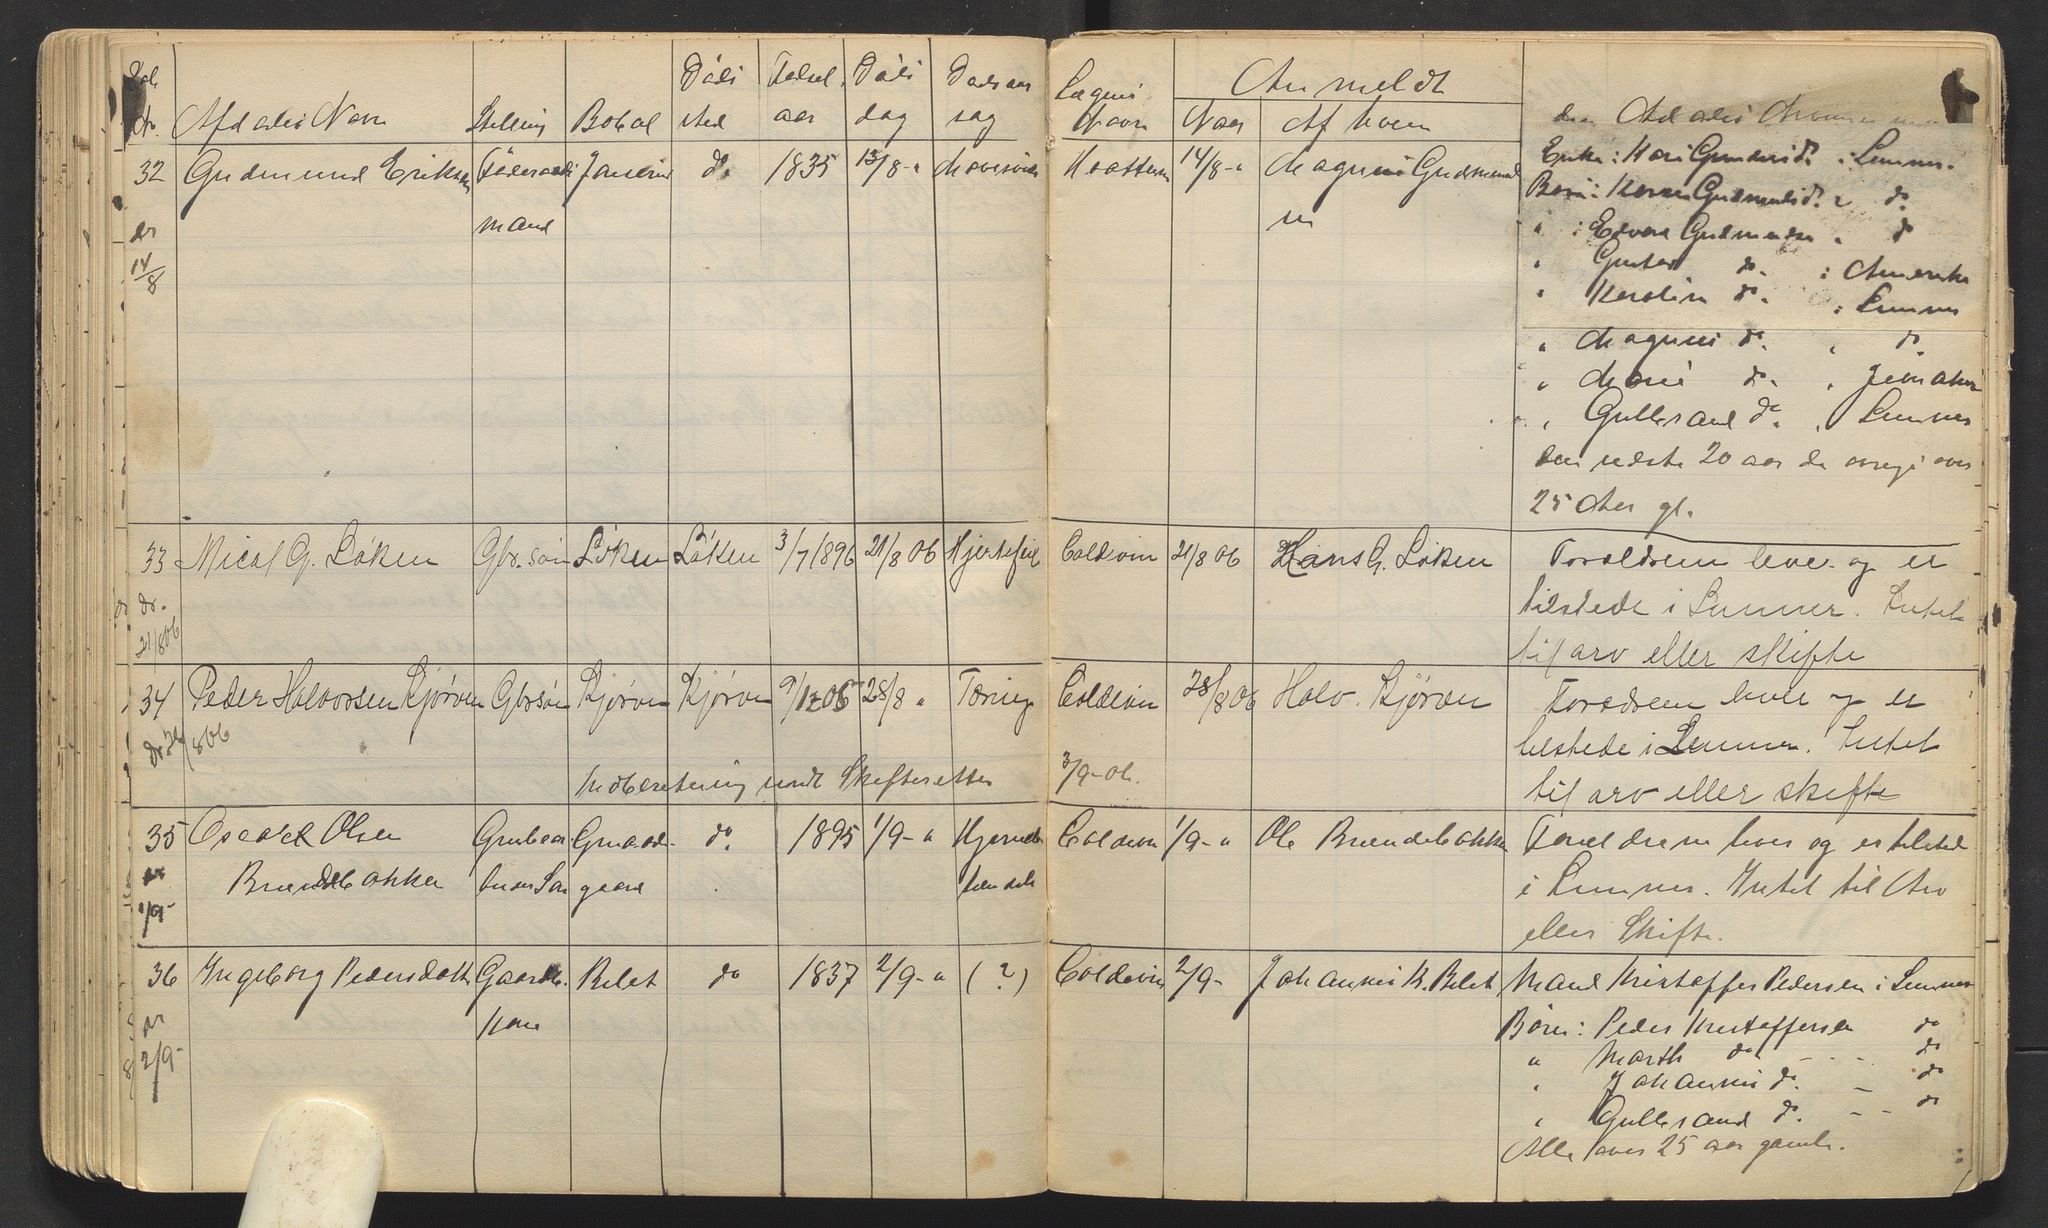 Afdødes Navn Stilling Bopæl Døds sted Fødsels aar Døds dag Dødsaar sag
Lægens Navn Anmeldt Naar Af hvem
32 Gudmund Eriksen Føderaads mand do 1835 13/8 - "
14/8 - " Magnus Gudmundsen
dr 14/8
Enke: Kari Gundersd. i Lunner.
Børn: Karen Gudmundsd. " do
" : Edvard Gudmundsen " do
" Gustav do. i Amerika
" Karoline do. i Lunner
" Magnus do. " do
" Marie do. " Jevnaker
" Gulbrand do. " Lunner
Den yngste 20 aar de øvrige over
25 Aar gl.
33 Mical G. Løken Gbr.søn Løken Løken 3/7 1896 21/8 06 Hjertefeil
Coldevin 21/8 06 Hans G. Løken Forældrene lever og er
dr. 21/8 06
tilstede i Lunner. Intet
til arv eller skifte
34 Peder Halvorsen Kjørven Gbrsøn Kjørven Kjørven 28/8 " Tæring
Coldevin 28/8 06 Halv. Kjørven Forældrene lever og er
tilstede i Lunner. Intet
Indberetning sendt Skifteretten 3/9 - 06.
til arv eller skifte
35 Olsen do 1895 1/9 - "
Coldevin 1/9 - " Ole Brændebakken Forældrene lever og er tilsted
Brændebakken gaard
i Lunner. Intet til Arv
1/9 -
eller Skifte.
36 Ingeborg Pedersdatter Gaardb. Kone Bilet do 1837 2/9 - " (?)
Coldevin 2/9 - Johannes K. Bilet Mand Kristoffer Pedersen i Lunner
dr 2/9 -
Børn: Peder Kristoffersen do
" Marth do. - - - do
" Johannes do. - do
" Gulbrand do. - - do
Alle over 25 aar gamle.